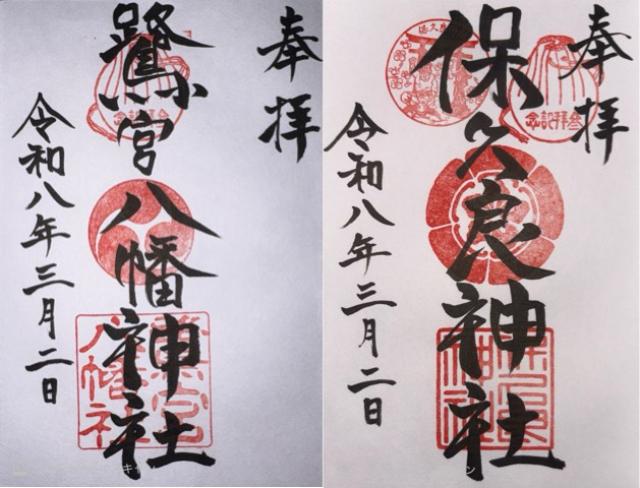 奉拝
鷺宮八幡神社
令和八年三月二日
八幡社
奉拝
保久良神社
参拝記念
令和八年三月二日